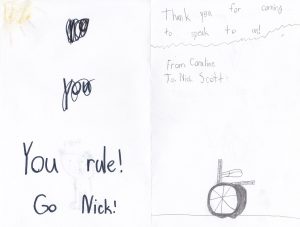 you
You rule!
Go Nick!
Thank you for coming
to speak to us!
From Caroline
To Nick Scott